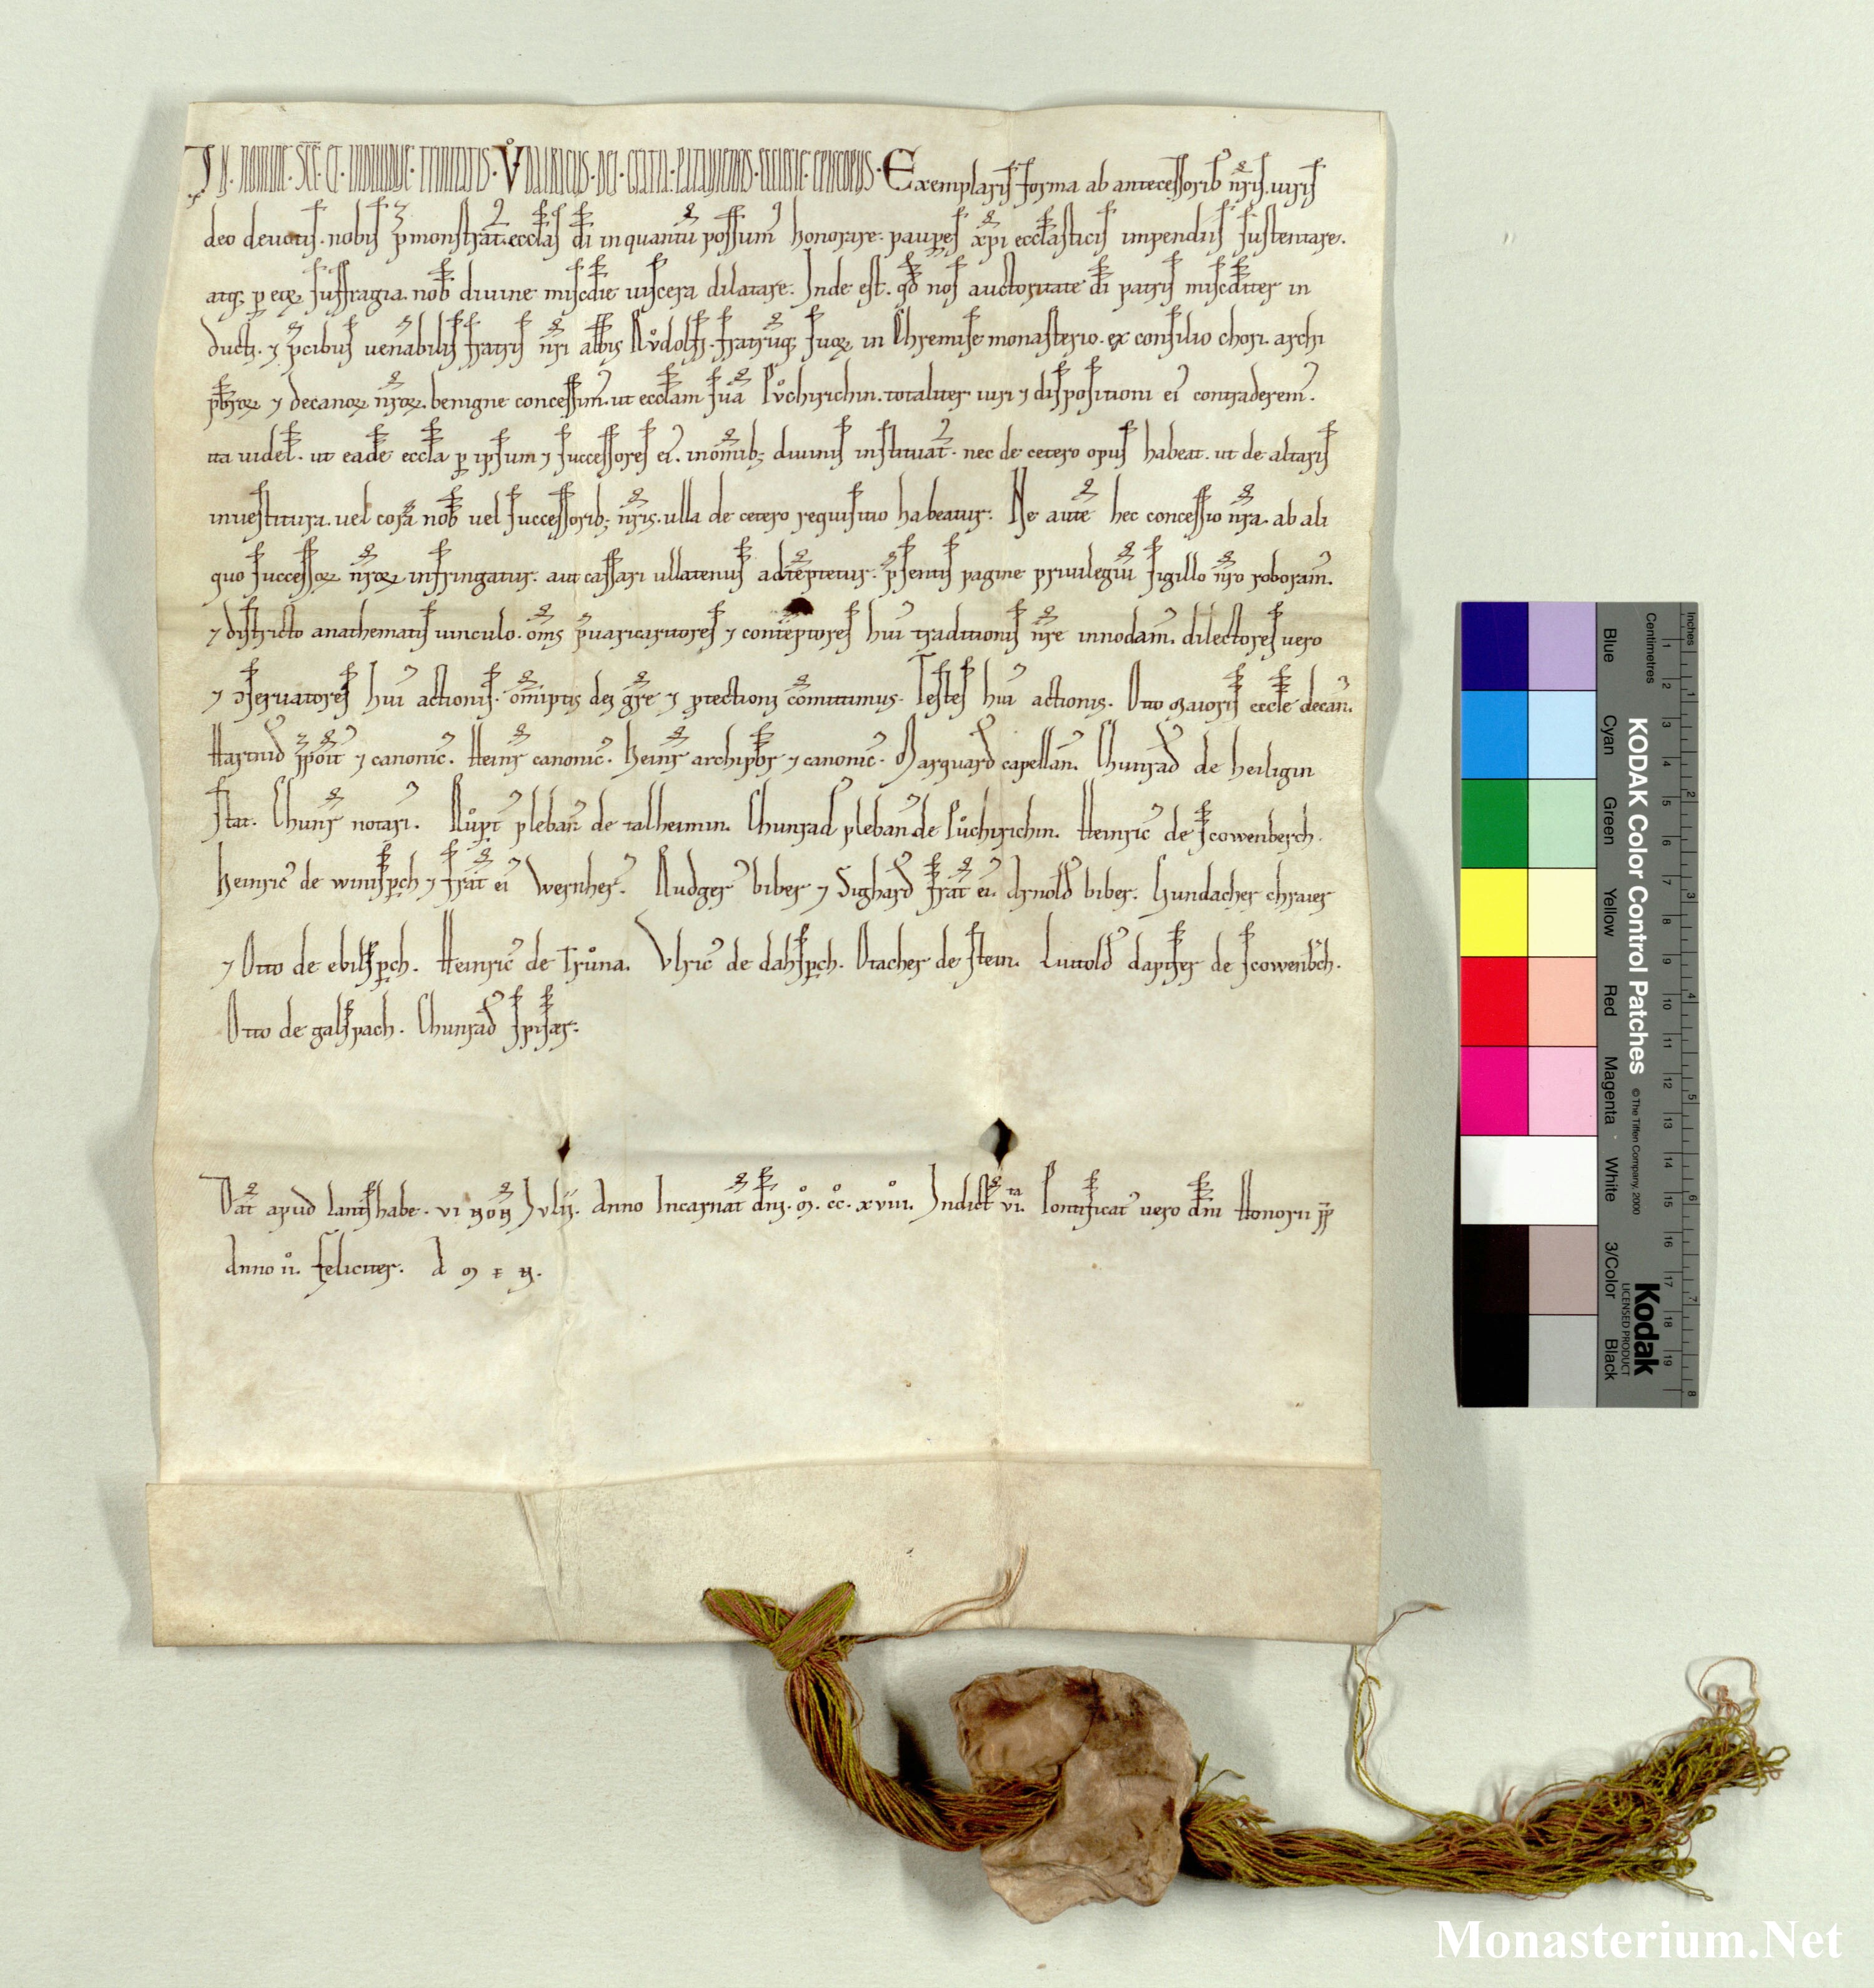 IN. NOMINE. SCE. ET. INDIVIDUE. TRINITATIS. Vͦdalricus. dei. gratia. pataviensis. ecclesie. episcopus. Exemplaris forma ab antecessorib nr̄is. uiris
deo deuotis. nobis p̄monstrat̄. eccl̄as dī in quantū possum᾽ honorare. paup̱es xp̄i eccl̄asticis impendiis sustentare.
atq; p̱ eoꝝ suffragia. nob̄ diuine misc̄die uiscera dilatare. Inde est. qd̄ nos auctoritate dī patris misc̄diter in
ducti. ⁊ p̄cibus uenabilis fratris nr̄i abb̄is Rvͦdolfi. fratrūq; suoꝝ in Chremise monasterio. ex consilio chori. archi
pb̄roꝝ ⁊ decanoꝝ nr̄oꝝ. benigne concessim᾽. ut eccl̄am suā Pvͦchirichin. totaliter iuri ⁊ dispositioni ei᾽ contraderem᾽.
ita uidel̄. ut eadē eccl̄a p̱ ipsum ⁊ successores ei᾽. in om̄ib; diuinis instituat̄. nec de cetero opus habeat. ut de altaris
inuestitura. uel corā nob̄ uel successorib; nr̄is. ulla de cetero requisitio habeatur. Ne autē hec concessio nr̄a. ab ali
quo successoꝝ nr̄oꝝ infringatur. aut cassari ullatenus adtēptetur. p̄sentis pagine priuilegiū sigillo nr̄o roboram᾽.
⁊ districto anathematis uinculo. om̄s p̄uaricatores ⁊ contēptores hui᾽ traditionis nr̄e innodam᾽. dilectores uero
⁊ ↄseruatores hui᾽ actionis. om̄iptis dei gr̄e ⁊ protectioni cōmittimus. Testes hui᾽ actionis. Otto maioris eccl̄e decan᾽.
Hartuid p̄poit᾽ ⁊ canonic᾽. Heinr̄ canonic᾽. Heinr̄ archipb̄r ⁊ canonic᾽. Marquard᾽ capellan᾽. Chunrad᾽ de heiligin
stat. Chunr̄ notari᾽. Rvͦpt᾽ pleban᾽ de talheimin. Chunrad᾽ pleban᾽ de Pvͦchirichin. Heinric᾽ de scowenberch.
Heinric᾽ de winisp̱ch ⁊ frat̄ ei᾽ Wernher᾽. Rudger᾽ biber ⁊ Sighard᾽ frat̄ ei᾽. Arnold᾽ biber. Gundacher chraier
⁊ Otto de ebilsp̱ch. Heinric᾽ de Truͦna. Vlric᾽ de dahsp̱ch. Otacher de stein. Luttold᾽ dapifer de scowenb̄ch.
Otto de galspach. Chunrad᾽ spisær.
Dat̄ apud lantshabe. vi noͦn Julii. Anno Incarnat̄ dn̄i. mͦ. ccͦ. xviiiͦ. Indict̄ viᵗᵃ. Pontificat᾽ uero dn̄i Honorii p̄p
Anno iiͦ. feliciter. A M E N.
Inches
Centimetres
Blue
Cyan
Green
Yellow
Red
Magenta
White
3/Color
Black
KODAK Color Control Patches
© The Tiffen Company, 2000
Kodak
LICENSED PRODUCT
Monasterium.Net